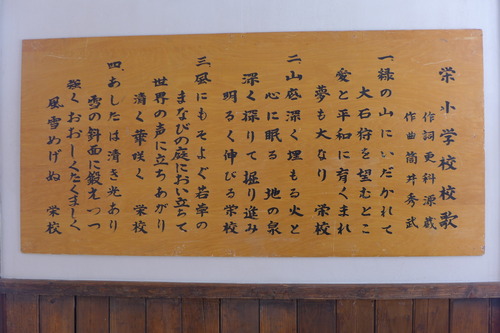 栄小学校校歌
作詞 更科源蔵
作曲 筒井秀武
一、緑の山にいだかれて
大石狩を望むとこ
愛と平和に育くまれ
夢も大なり 栄校
二、山底深く埋もる火と
心に眠る 地の泉
深く探りて掘り進み
明るく伸びる栄校
三、風にもそよぐ若草の
まなびの庭におい立ちて
世界の声に立ちあがり
清く華咲く 栄校
四、あしたは清き光あり
雪の斜面に鍛えつつ
強くおおしくたくましく
風雪めげぬ 栄校